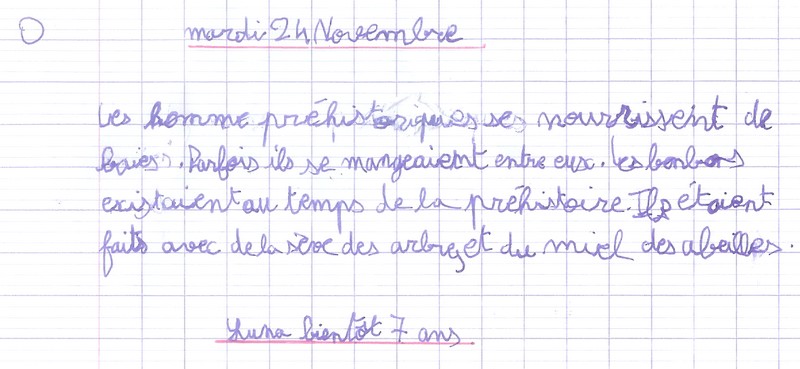 mardi 24 Novembre
Les homme préhistoriques ses nourrissent de
baies. Parfois ils se mangeaient entre eux. Les bonbons
existaient au temps de la préhistoire. Ils étaient
faits avec de la sève des arbres et du miel des abeilles.
Luna bientôt 7 ans